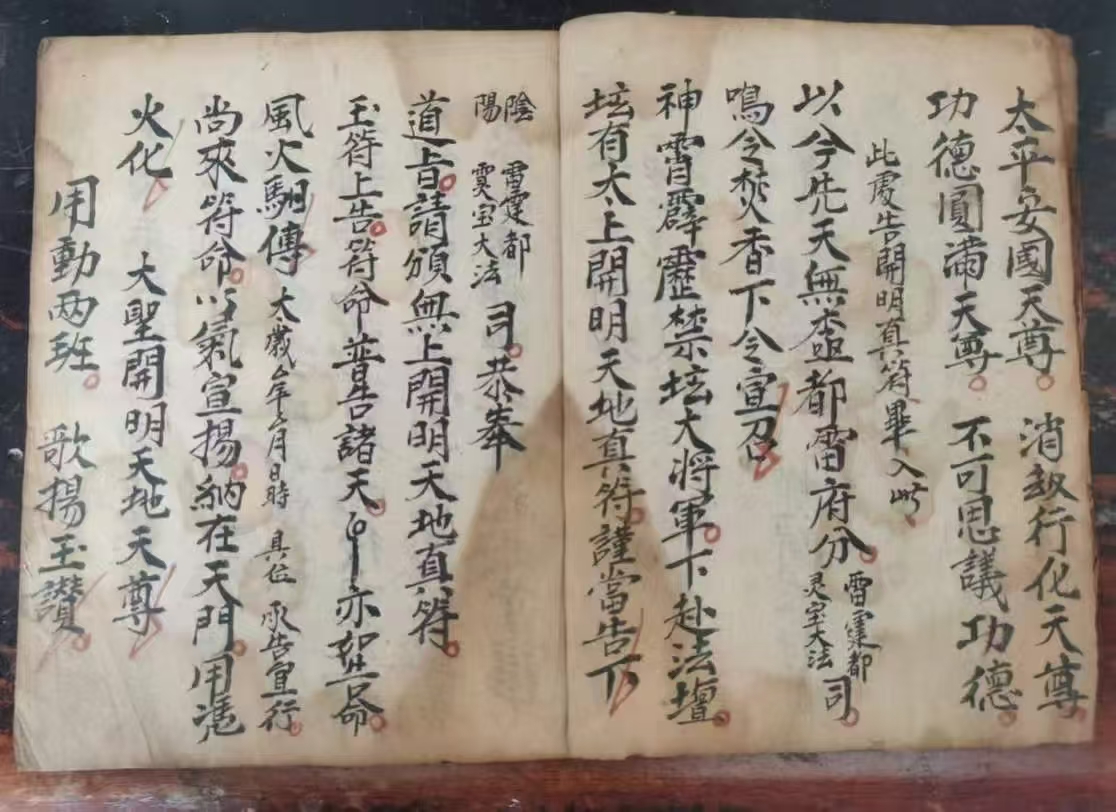 太平安國天尊。消劫行化天尊。
功德圓滿天尊。不可思議功德。
此處告開明真符畢入此。
以今先天無盡都雷府分。雷霆都灵宝大法司。
鳴令焚香下令宣召。
神霄霹靂禁坛大將軍。下赴法壇。
坛有太上開明天地真符。謹當告下。
陰陽 雷霆都灵宝大法 司。恭奉
道旨。請頒無上開明天地真符。
玉符上告。符命普告諸天。亦如告命。
風火馹傳 太歲 年 月 日 時 具位 承告宣行。
尚來符命。以氣宣揚。納在天門。用憑
火化。 大聖開明天地天尊
用動两班。 歌揚玉讚。